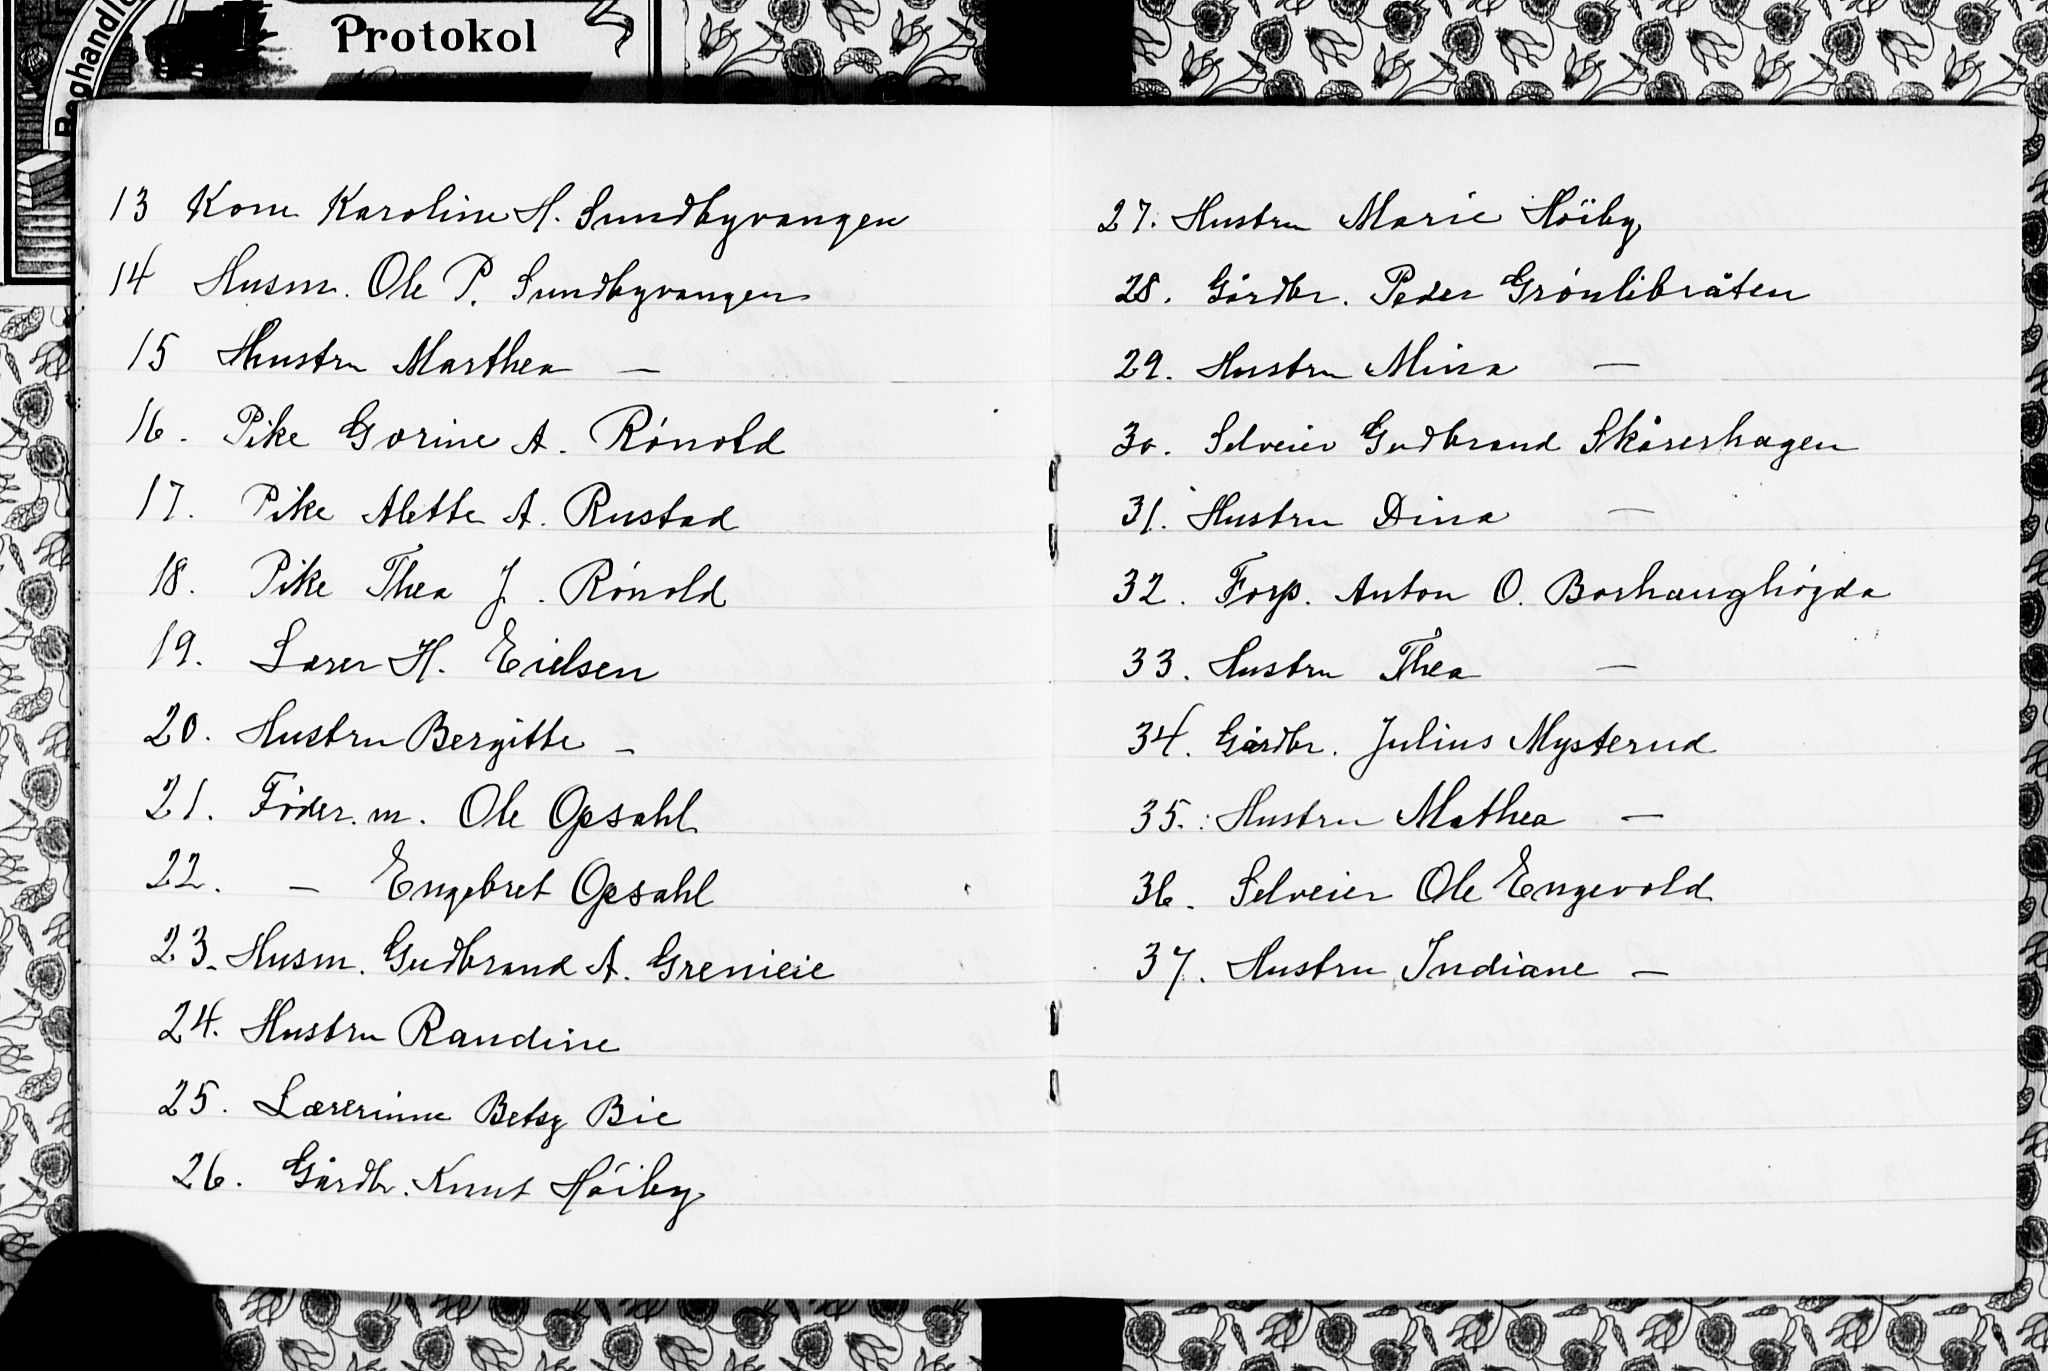 Protokol
13 Kone Karoline H. Sundbyvangen
14 Husm. Ole P. Sundbyvangen
15 Hustru Marthea —
16. Pike Gorine A. Rónold
17. Pike Alette A. Rustad
18. Pike Thea J. Rónold
19. Lærer H. Eielsen
20. Hustru Bergitte –
21. Föder.m. Ole Opsahl
22. – Engebret Opsahl
23. Husm. Gudbrand A. Grenieie
24. Hustru Randine
25. Lærerinne Betsy Bie
26. Gårdbr. Knut Hóiby
27. Hustru Marie Höiby
28. Gårdbr. Peder Grónlibråten
29. Hustru Mina —
30. Selveier Gudbrand Skårerhagen
31. Hustru Dina —
32. Forp. Anton O. Borhaughógda
33. Hustru Thea —
34. Gårdbr. Julius Mysterud
35. Hustru Mathea —
36. Selveier Ole Engevold
37. Hustru Indiane —